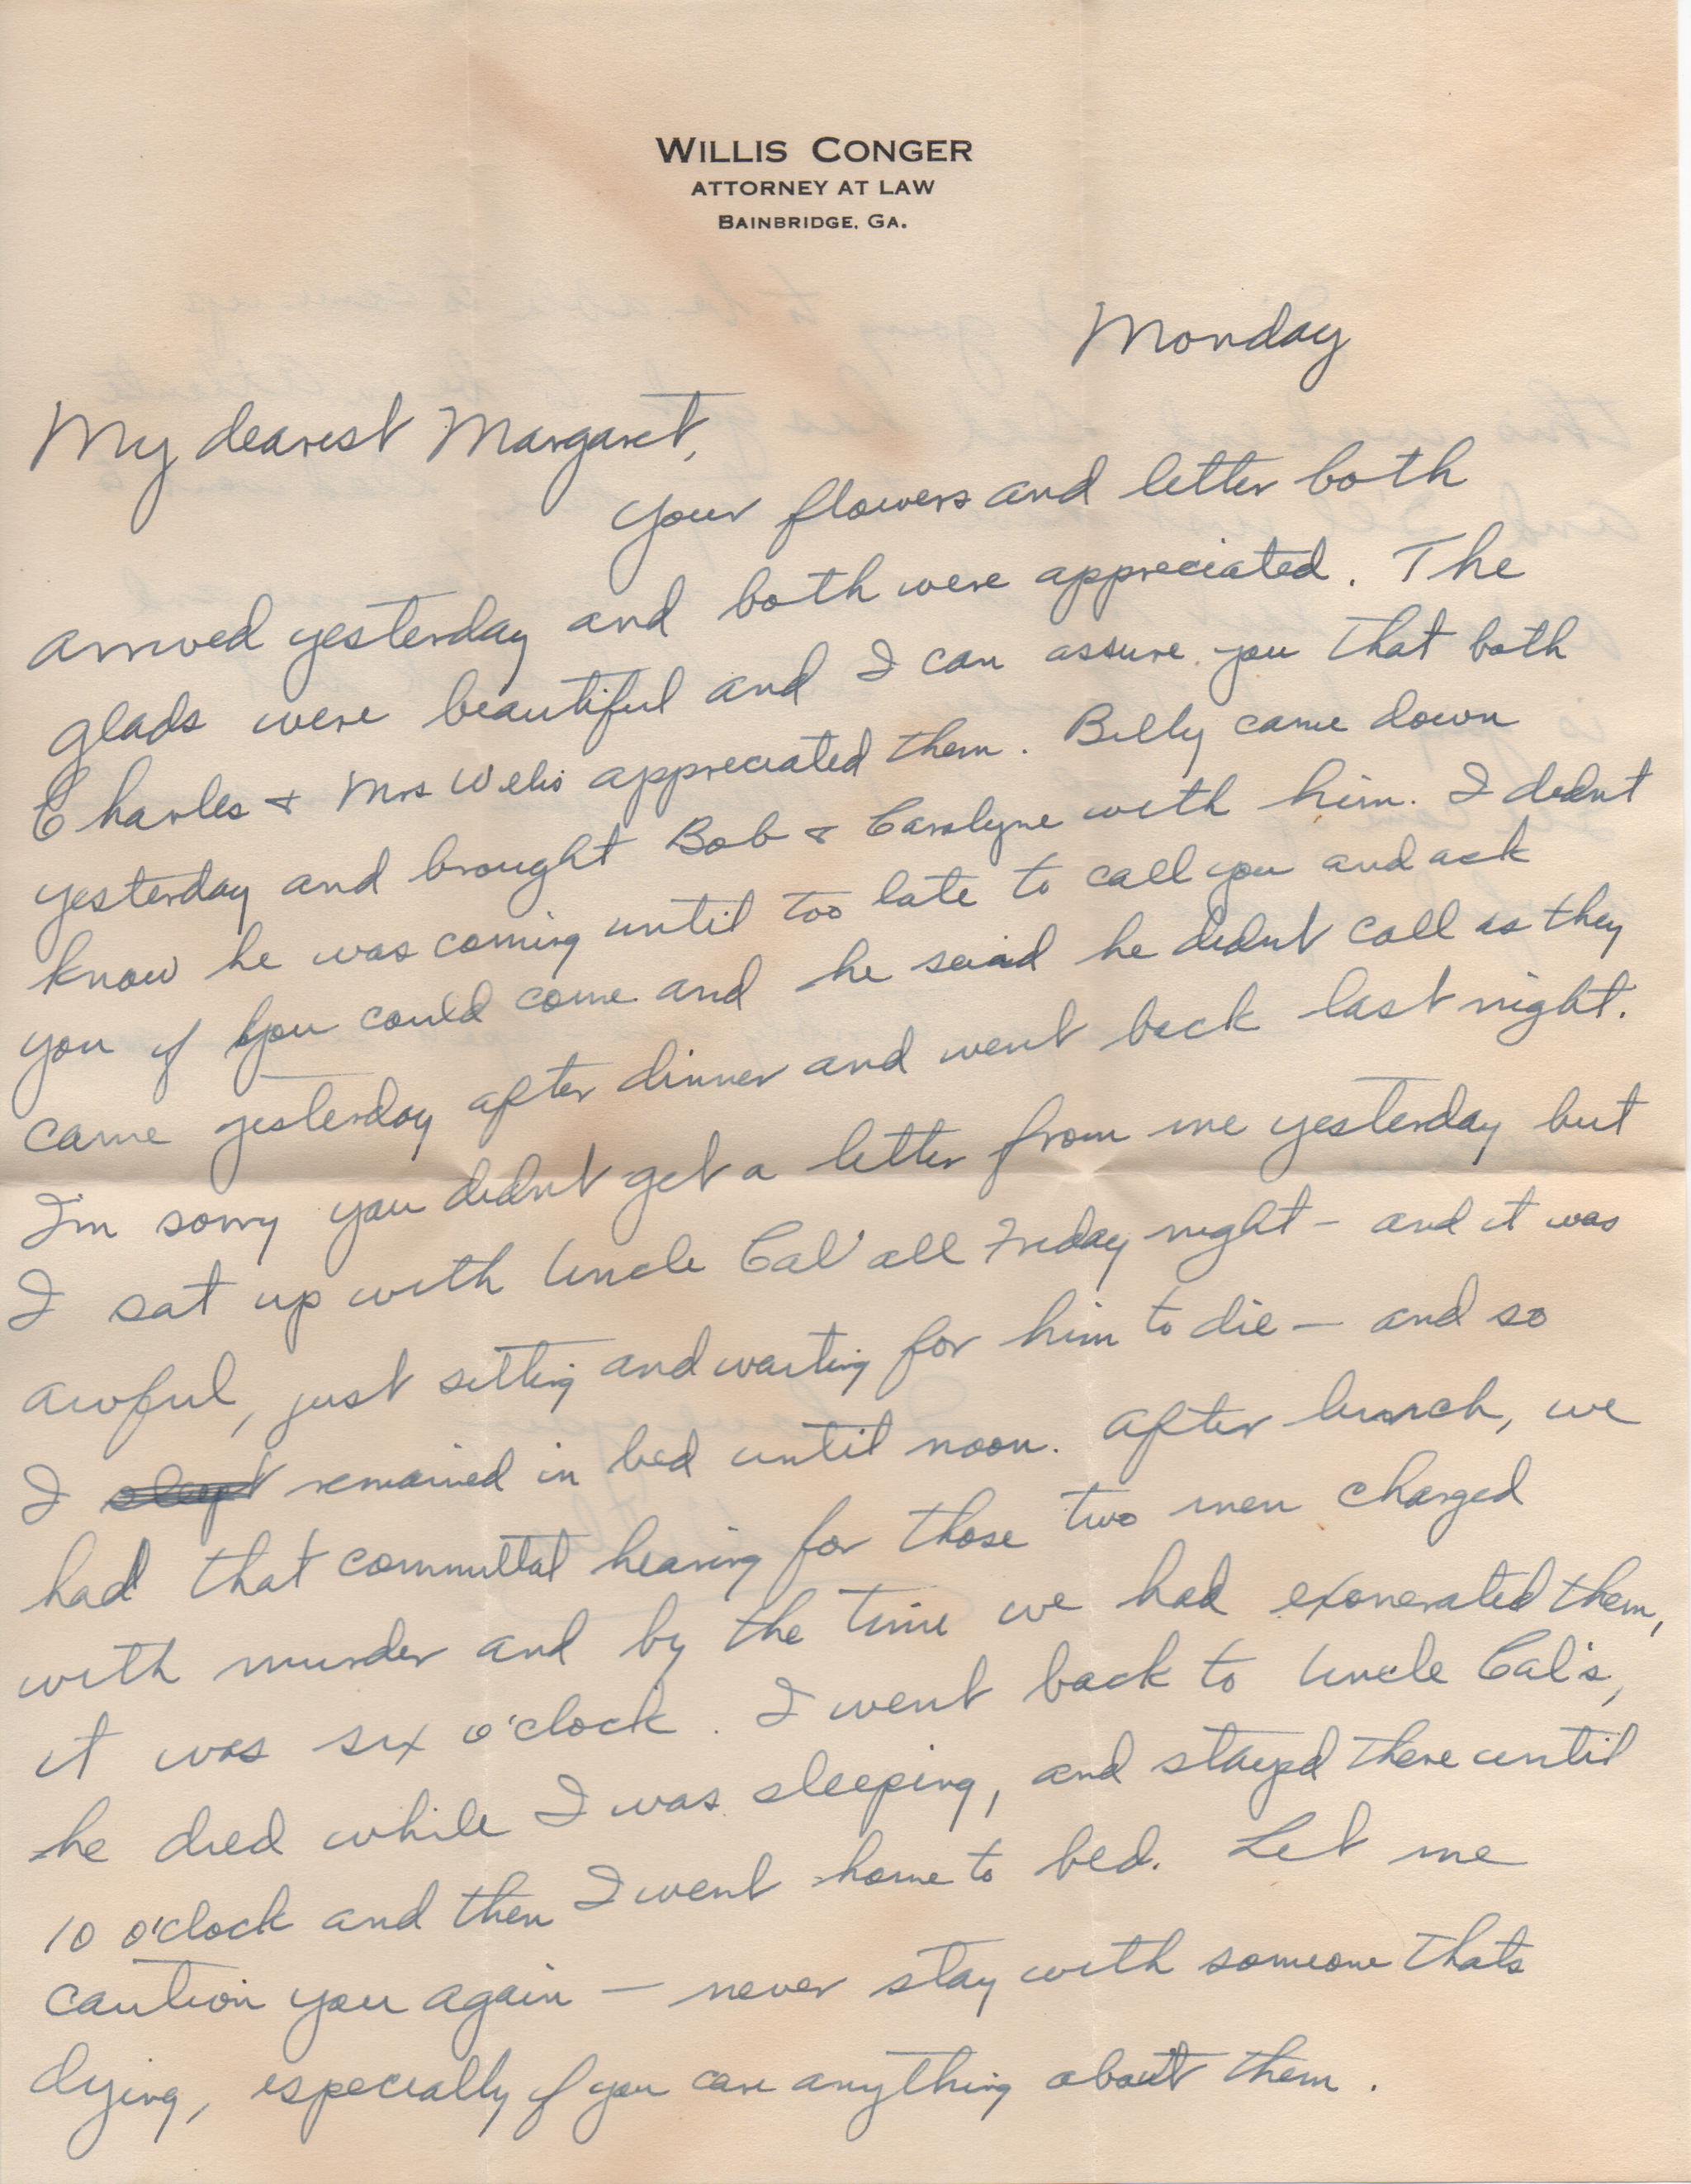 WILLIS CONGER
ATTORNEY AT LAW
BAINBRIDGE, GA.
Monday
My dearest Margaret,
Your flowers and letter both
arrived yesterday and both were appreciated. The
glads were beautiful and I can assure you that both
Charles & Mrs Willis appreciated them. Billy came down
yesterday and brought Bob & Carolyne with him. I didnt
know he was coming until too late to call you and ask
you if you could come and he said he didnt call as they
came yesterday after dinner and went back last night.
I'm sorry you didnt get a letter from me yesterday but
I sat up with Uncle Cal all Friday night – and it was
awful, just sitting and waiting for him to die – and so
I slept remained in bed until noon. After lunch, we
had that committal hearing for those two men charged
with murder and by the time we had exonerated them,
it was six o'clock. I went back to Uncle Cal's,
he died while I was sleeping, and stayed there until
10 o'clock and then I went home to bed. Let me
caution you again – never stay with someone thats
dying, especially if you care anything about them.